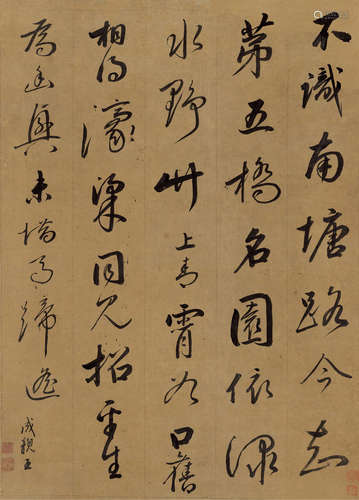 不識南塘路今知
第五橋名園依綠
水野竹上青霄谷口舊
相得濠梁同見招平生
為幽興未惜馬蹄遙
成親王